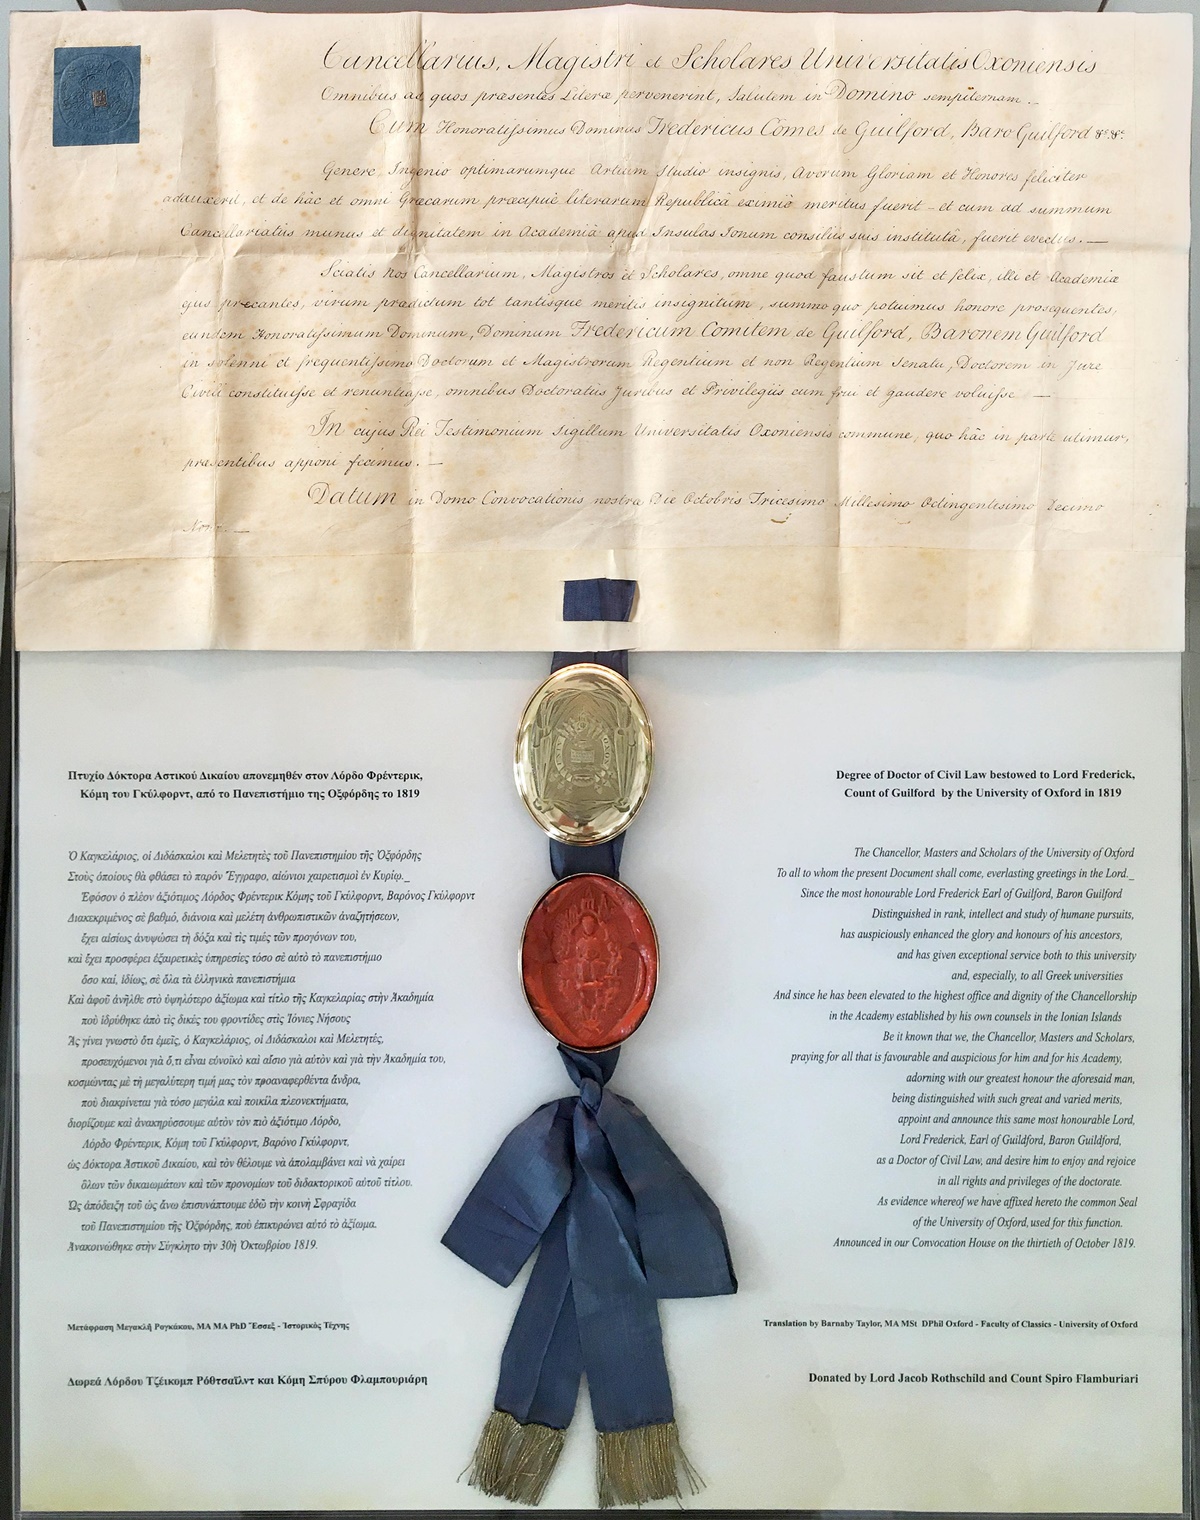 Cancellarius, Magistri et Scholares Universitatis Oxoniensis
Omnibus ad quos præsentes Literæ pervenerint, Salutem in Domino sempiternam. —
Cum Honoratissimus Dominus Fredericus Comes de Guilford, Baro Guilford &c. &c.
Genere Ingenio optimarumque Artium Studio insignis, Avorum Gloriam et Honores feliciter
adauxerit, et de hâc et omni Græcarum præcipuè literarum Republicâ eximiè meritus fuerit – et cum ad summum
Cancellariatûs munus et dignitatem in Academiâ apud Insulas Ionum consiliis suis institutâ, fuerit evectus. —
Sciatis nos Cancellarium, Magistros et Scholares, omne quod faustum sit et felix, illi et Academiæ
ejus precantes, virum prædictum tot tantisque meritis insignitum, summo quo potuimus honore prosequentes,
eundem Honoratissimum Dominum, Dominum Fredericum Comitem de Guilford, Baronem Guilford
in solenni et frequentissimo Doctorum et Magistrorum Regentium et non Regentium Senatu, Doctorem in Jure
Civili constituisse et renuntiasse, omnibus Doctoratûs Juribus et Privilegiis eum frui et gaudere voluisse —
In cujus Rei Testimonium Sigillum Universitatis Oxoniensis commune, quo hâc in parte utimur,
præsentibus apponi fecimus. —
Datum in Domo Convocationis nostræ Die Octobris Tricesimo Millesimo Octingentesimo Decimo
Nono —
Πτυχίο Δόκτορα Αστικού Δικαίου απονεμηθέν στον Λόρδο Φρέντερικ,
Κόμη του Γκύλφορντ, από το Πανεπιστήμιο της Οξφόρδης το 1819
Ὁ Καγκελάριος, οἱ Διδάσκαλοι καὶ Μελετητὲς τοῦ Πανεπιστημίου τῆς Ὀξφόρδης
Στοὺς ὁποίους θὰ φθάσει τὸ παρόν Ἔγγραφο, αἰώνιοι χαιρετισμοὶ ἐν Κυρίῳ._
Ἐφόσον ὁ πλέον ἀξιότιμος Λόρδος Φρέντερικ Κόμης τοῦ Γκύλφορντ, Βαρόνος Γκύλφορντ
Διακεκριμένος σὲ βαθμό, διάνοια καὶ μελέτη ἀνθρωπιστικῶν ἀναζητήσεων,
ἔχει αἰσίως ἀνυψώσει τὴ δόξα καὶ τὶς τιμές τῶν προγόνων του,
καὶ ἔχει προσφέρει ἐξαιρετικὲς ὑπηρεσίες τόσο σὲ αὐτὸ τὸ πανεπιστήμιο
ὅσο καί, ἰδίως, σὲ ὅλα τὰ ἑλληνικὰ πανεπιστήμια
Καὶ ἀφοῦ ἀνῆλθε στὸ ὑψηλότερο ἀξίωμα καὶ τίτλο τῆς Καγκελαρίας στὴν Ἀκαδημία
ποὺ ἱδρύθηκε ἀπὸ τὶς δικές του φροντίδες στὶς Ἰόνιες Νήσους
Ἂς γίνει γνωστὸ ὅτι ἐμεῖς, ὁ Καγκελάριος, οἱ Διδάσκαλοι καὶ Μελετητές,
προσευχόμενοι γιὰ ὅ,τι εἶναι εὐνοϊκὸ καὶ αἴσιο γιὰ αὐτὸν καὶ γιὰ τὴν Ἀκαδημία του,
κοσμώντας μὲ τὴ μεγαλύτερη τιμή μας τὸν προαναφερθέντα ἄνδρα,
ποὺ διακρίνεται γιὰ τόσο μεγάλα καὶ ποικίλα πλεονεκτήματα,
διορίζουμε καὶ ἀνακηρύσσουμε αὐτὸν τὸν πιὸ ἀξιότιμο Λόρδο,
Λόρδο Φρέντερικ, Κόμη τοῦ Γκύλφορντ, Βαρόνο Γκύλφορντ,
ὡς Δόκτορα Ἀστικοῦ Δικαίου, καὶ τὸν θέλουμε νὰ ἀπολαμβάνει καὶ νὰ χαίρει
ὅλων τῶν δικαιωμάτων καὶ τῶν προνομίων τοῦ διδακτορικοῦ αὐτοῦ τίτλου.
Ὡς ἀπόδειξη τοῦ ὡς ἄνω ἐπισυνάπτουμε ἐδῶ τὴν κοινὴ Σφραγίδα
τοῦ Πανεπιστημίου τῆς Ὀξφόρδης, ποὺ ἐπικυρώνει αὐτὸ τὸ ἀξίωμα.
Ἀνακοινώθηκε στὴν Σύγκλητο τὴν 30ὴ Ὀκτωβρίου 1819.
Μετάφραση Μεγακλῆ Ρογκάκου, MA MA PhD Ἔσσεξ - Ἱστορικὸς Τέχνης
Δωρεά Λόρδου Τζέικομπ Ρόθτσαϊλντ και Κόμη Σπύρου Φλαμπουριάρη
Degree of Doctor of Civil Law bestowed to Lord Frederick,
Count of Guilford by the University of Oxford in 1819
The Chancellor, Masters and Scholars of the University of Oxford
To all to whom the present Document shall come, everlasting greetings in the Lord._
Since the most honourable Lord Frederick Earl of Guilford, Baron Guilford
Distinguished in rank, intellect and study of humane pursuits,
has auspiciously enhanced the glory and honours of his ancestors,
and has given exceptional service both to this university
and, especially, to all Greek universities
And since he has been elevated to the highest office and dignity of the Chancellorship
in the Academy established by his own counsels in the Ionian Islands
Be it known that we, the Chancellor, Masters and Scholars,
praying for all that is favourable and auspicious for him and for his Academy,
adorning with our greatest honour the aforesaid man,
being distinguished with such great and varied merits,
appoint and announce this same most honourable Lord,
Lord Frederick, Earl of Guildford, Baron Guildford,
as a Doctor of Civil Law, and desire him to enjoy and rejoice
in all rights and privileges of the doctorate.
As evidence whereof we have affixed hereto the common Seal
of the University of Oxford, used for this function.
Announced in our Convocation House on the thirtieth of October 1819.
Translation by Barnaby Taylor, MA MSt DPhil Oxford - Faculty of Classics - University of Oxford
Donated by Lord Jacob Rothschild and Count Spiro Flamburiari